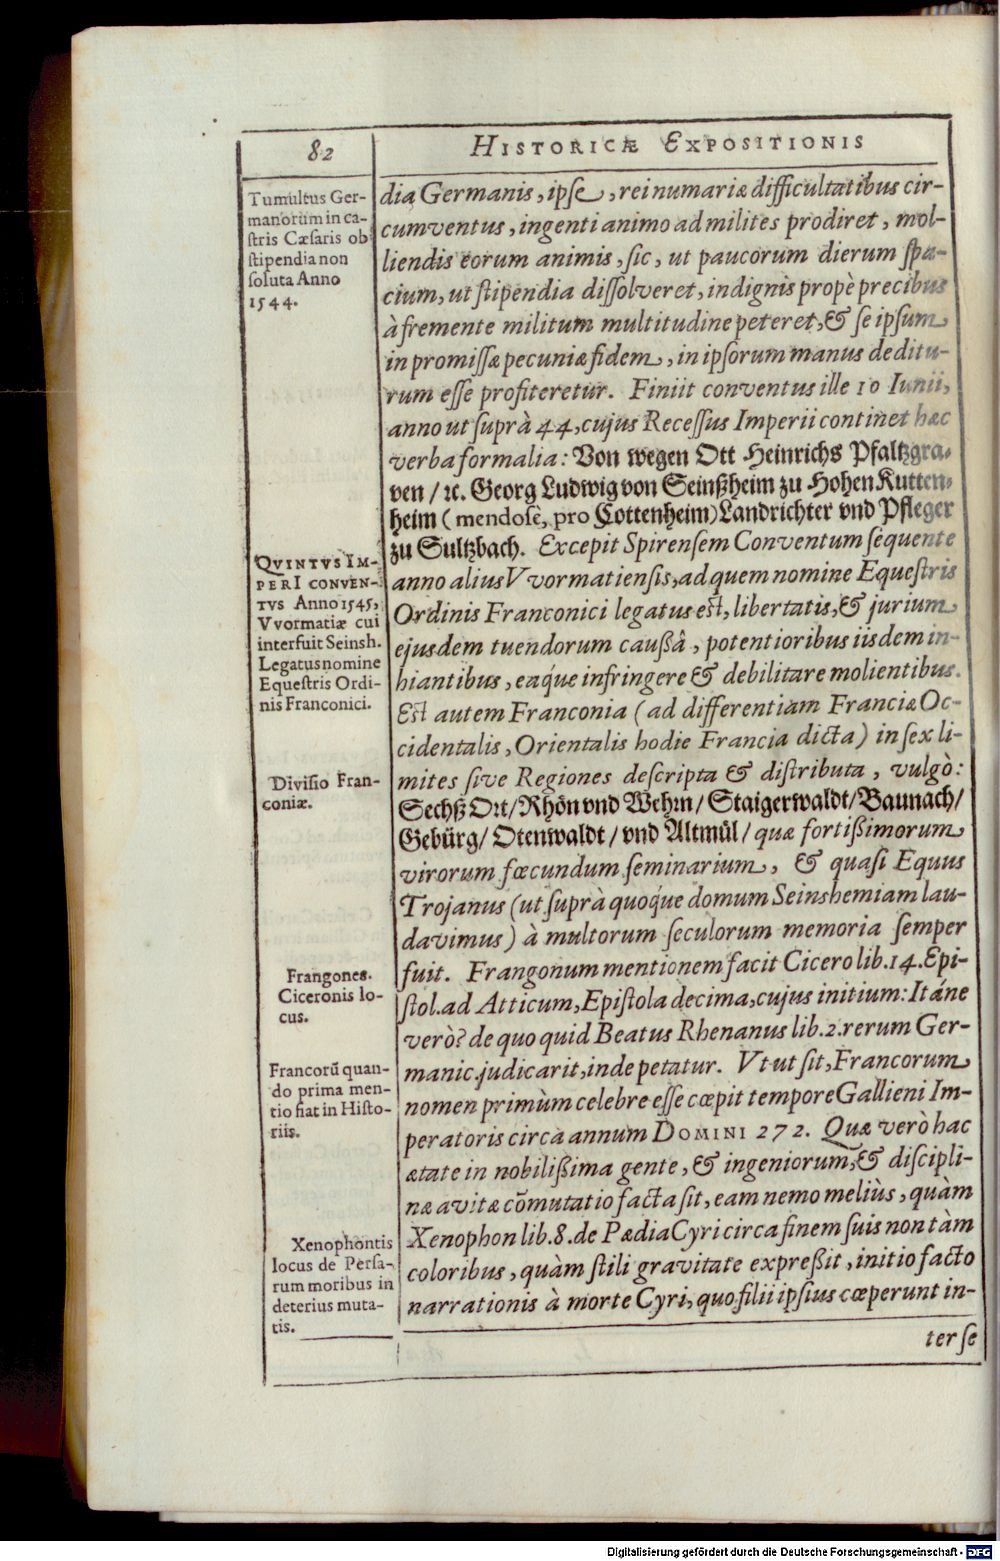 82
HISTORICÆ EXPOSITIONIS
Tumultus Ger-
manorum in ca-
stris Cæsaris ob
stipendia non
soluta Anno
1544.
dia Germanis, ipse, rei numariæ difficultatibus cir-
cumventus, ingenti animo ad milites prodiret, mol-
liendis eorum animis, sic, ut paucorum dierum spa-
cium, ut stipendia dissolveret, indignis propè precibus
à fremente militum multitudine peteret, & se ipsum
in promissæ pecuniæ fidem, in ipsorum manus deditu-
rum esse profiteretur. Finiit conventus ille 10 Iunii,
anno ut suprà 44, cujus Recessus Imperii continet hæc
verba formalia: Von wegen Ott Heinrichs Pfaltzgra-
ven / ꝛc. Georg Ludwig von Seinßheim zu Hohen Kutten-
heim (mendosè, pro Cottenheim) Landrichter vnd Pfleger
zu Sultzbach. Excepit Spirensem Conventum sequente
QVINTVS IM-
PERI CONVEN-
TVS Anno 1545,
Vvormatiæ cui
interfuit Seinsh.
Legatus nomine
Equestris Ordi-
nis Franconici.
anno alius Vvormatiensis, ad quem nomine Equestris
Ordinis Franconici legatus est, libertatis, & jurium
ejusdem tuendorum caußâ, potentioribus iisdem in-
hiantibus, eaq́ue infringere & debilitare molientibus.
Est autem Franconia (ad differentiam Franciæ Oc-
cidentalis, Orientalis hodie Francia dicta) in sex li-
mites sive Regiones descripta & distributa, vulgò:
Divisio Fran-
coniæ.
Sechß Ort / Rhön vnd Wehrn / Staigerwaldt / Baunach /
Gebürg / Otenwaldt / vnd Altmül / quæ fortißimorum
virorum fœcundum seminarium, & quasi Equus
Trojanus (ut suprà quoq́ue domum Seinshemiam lau-
davimus) à multorum seculorum memoria semper
fuit. Frangonum mentionem facit Cicero lib. 14. Epi-
Frangones.
Ciceronis lo-
cus.
stol. ad Atticum, Epistola decima, cujus initium: Itáne
verò? de quo quid Beatus Rhenanus lib. 2. rerum Ger-
manic. judicarit, inde petatur. Vt ut sit, Francorum
Francorũ quan-
do prima men-
tio fiat in Histo-
riis.
nomen primùm celebre esse cœpit tempore Gallieni Im-
peratoris circa annum DOMINI 272. Quæ verò hac
ætate in nobilißima gente, & ingeniorum, & discipli-
næ avitæ cõmutatio facta sit, eam nemo meliùs, quàm
Xenophon lib. 8. de Pædia Cyri circa finem suis non tàm
coloribus, quàm stili gravitate expreßit, initio facto
narrationis à morte Cyri, quo filii ipsius cœperunt in-
Xenophontis
locus de Persa-
rum moribus in
deterius muta-
tis.
ter se
Digitalisierung gefördert durch die Deutsche Forschungsgemeinschaft - DFG